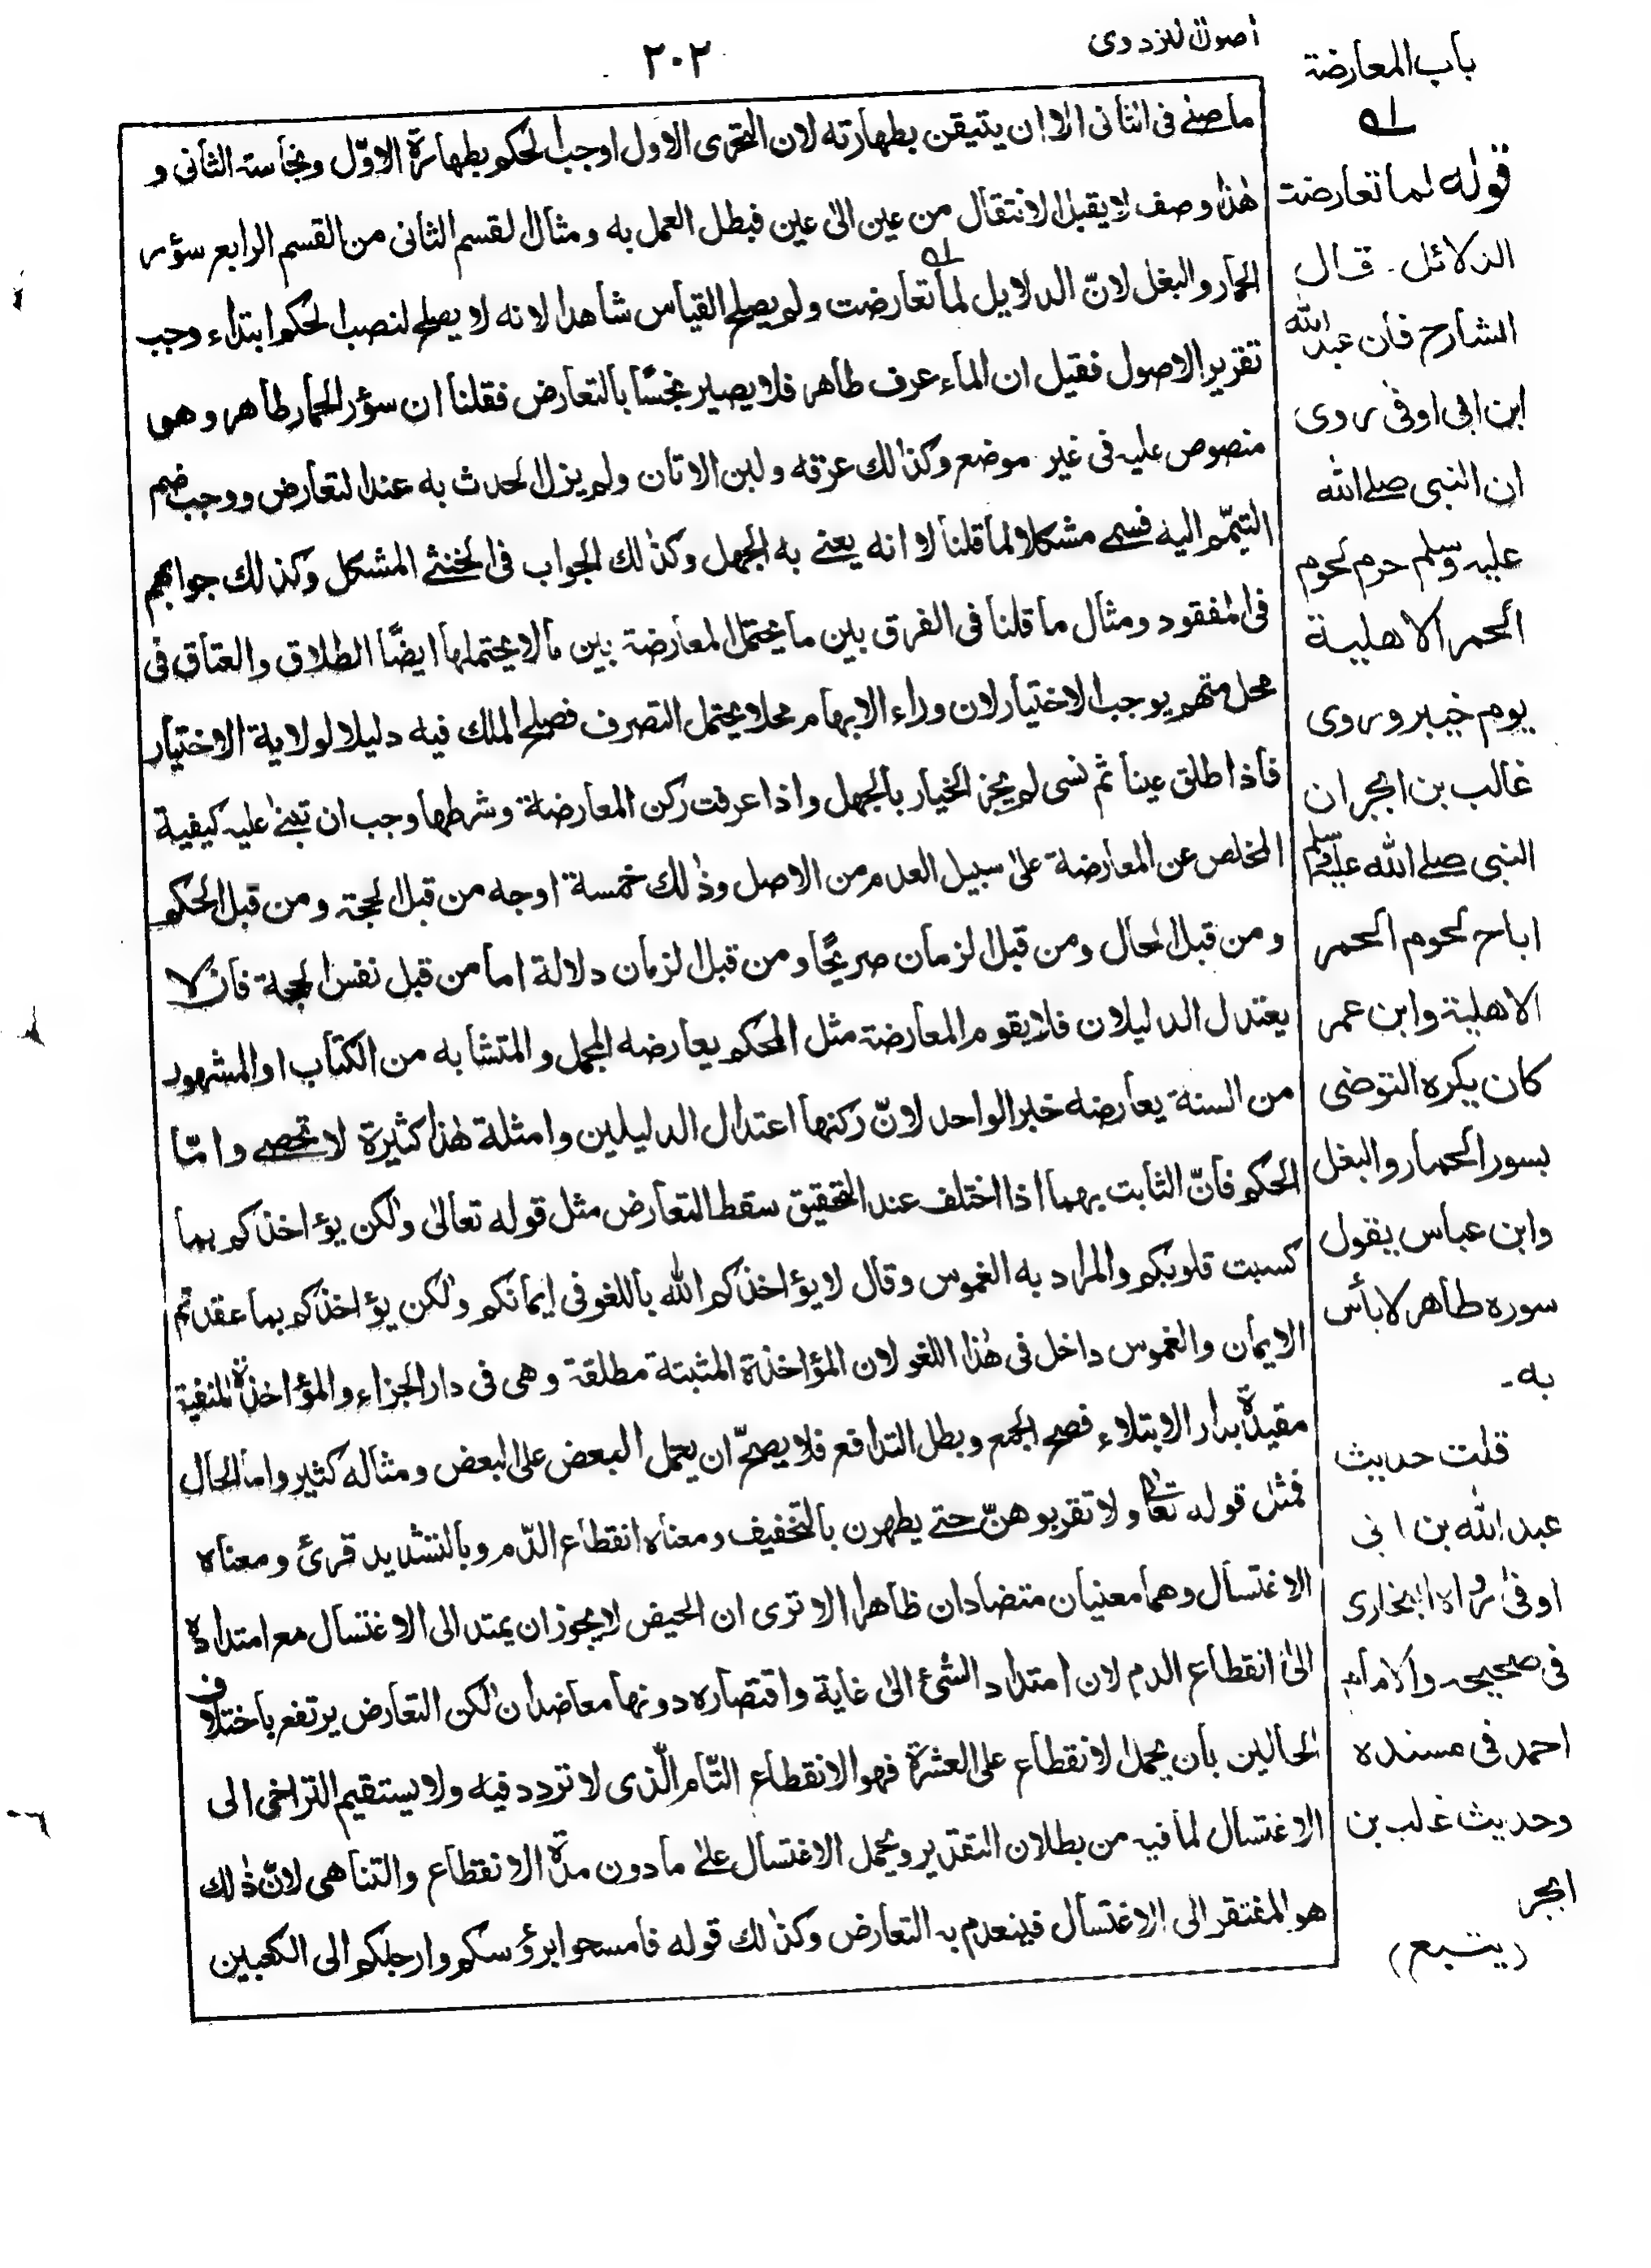 باب المعارضة
اصول للبزدوى
٢٠٢
ما صلى فى الثانى الا ان يتيقن بطهارته لان التحرى الاول اوجب الحكم بطهارة الاوّل ونجاسة الثانى و
هٰذا وصف لا يقبل الانتقال من عين الىٰ عين فبطل العمل به ومثال القسم الثانى من القسم الرابع سؤر
الحمار والبغل لانّ الدلايل لما تعارضت ولم يصلح القياس شاهدا لانه لا يصلح لنصب الحكم ابتداء وجب
تقرير الاصول فقيل ان الماء عرف طاهر فلا يصير نجسًا بالتعارض فقلنا ان سؤر الحمار طاهر وهى
منصوص عليه فى غير موضع وكذٰلك عرقه ولبن الاتان ولم يزل الحدث به عند التعارض ووجب ضم
التيمّم اليه فسمى مشكلا لما قلنا لا انه يعنى به الجهل وكذٰلك الجواب فى الخنثى المشكل وكذلك جوابهم
فى المفقود ومثال ما قلنا فى الفرق بين ما يحتمل المعارضة بين ما لا يحتملها ايضًا الطلاق والعتاق فى
محل مبهم يوجب الاختيار لان وراء الابهام محلا يحتمل التصرف فصلح الملك فيه دليلا لولاية الاختيار
فاذا طلق عينا ثم نسى لم يجز الخيار بالجهل واذا عرفت ركن المعارضة وشرطها وجب ان تبنىٰ عليه كيفية
المخلص عن المعارضة علىٰ سبيل العدم من الاصل وذٰلك خمسة اوجه من قبل الحجة ومن قبل الحكم
ومن قبل الحال ومن قبل الزمان صريحًا ومن قبل الزمان دلالة اما من قبل نفس الحجة فان لا
يعتدل الدليلان فلا يقوم المعارضة مثل المحكم يعارضه المجمل والمتشابه من الكتاب او المشهور
من السنة يعارضه خبر الواحد لانّ ركنها اعتدال الدليلين وامثلة هٰذا كثيرة لا تحصى وامّا
الحكم فانّ الثابت بهما اذا اختلف عند التحقيق سقط التعارض مثل قوله تعالىٰ ولٰكن يؤاخذكم بما
كسبت قلوبكم والمراد به الغموس وقال لا يؤاخذكم الله باللغو فى ايمانكم ولٰكن يؤاخذكم بما عقدتم
الايمان والغموس داخل فى هٰذا اللغو لان المؤاخذة المثبتة مطلقة وهى فى دار الجزاء والمؤاخذة المنفية
مقيدة بدار الابتلاء فصح الجمع وبطل التدافع فلا يصحّ ان يحمل البعض على البعض ومثاله كثير واما الحال
فمثل قوله تعالى ولا تقربوهنّ حتى يطهرن بالتخفيف ومعناه انقطاع الدّم وبالتشديد قرئ ومعناه
الاغتسال وهما معنيان متضادان ظاهرا الا ترى ان الحيض لا يجوز ان يمتد الى الاغتسال مع امتداده
الىٰ انقطاع الدم لان امتداد الشئ الىٰ غاية واقتصاره دونها معا ضدان لٰكن التعارض يرتفع باختلاف
الحالين بان يحمل الانقطاع على العشرة فهو الانقطاع التّام الّذى لا تردد فيه ولا يستقيم التراخى الى
الاغتسال لما فيه من بطلان التقدير ويحمل الاغتسال علىٰ ما دون مدة الانقطاع والتناهى لانّ ذٰلك
هو المفتقر الى الاغتسال فينعدم به التعارض وكذٰلك قوله فامسحوا برؤسكم وارجلكم الى الكعبين
له
قوله لما تعارضت
الدلائل - قال
الشارح فان عبد الله
ابن ابى اوفىٰ روى
ان النبى صلے الله
عليه وسلم حرم لحوم
الحمر الاهلية
يوم خيبر وروى
غالب بن ابجر ان
النبى صلے الله عليه وسلم
اباح لحوم الحمر
الاهلية وابن عمر
كان يكره التوضى
بسور الحمار والبغل
وابن عباس يقول
سوره طاهر لا بأس
به -
قلت حديث
عبد الله بن ابى
اوفىٰ رواه البخارى
فى صحيحه والامام
احمد فى مسنده
وحديث غالب بن
ابجر
(يتبع)